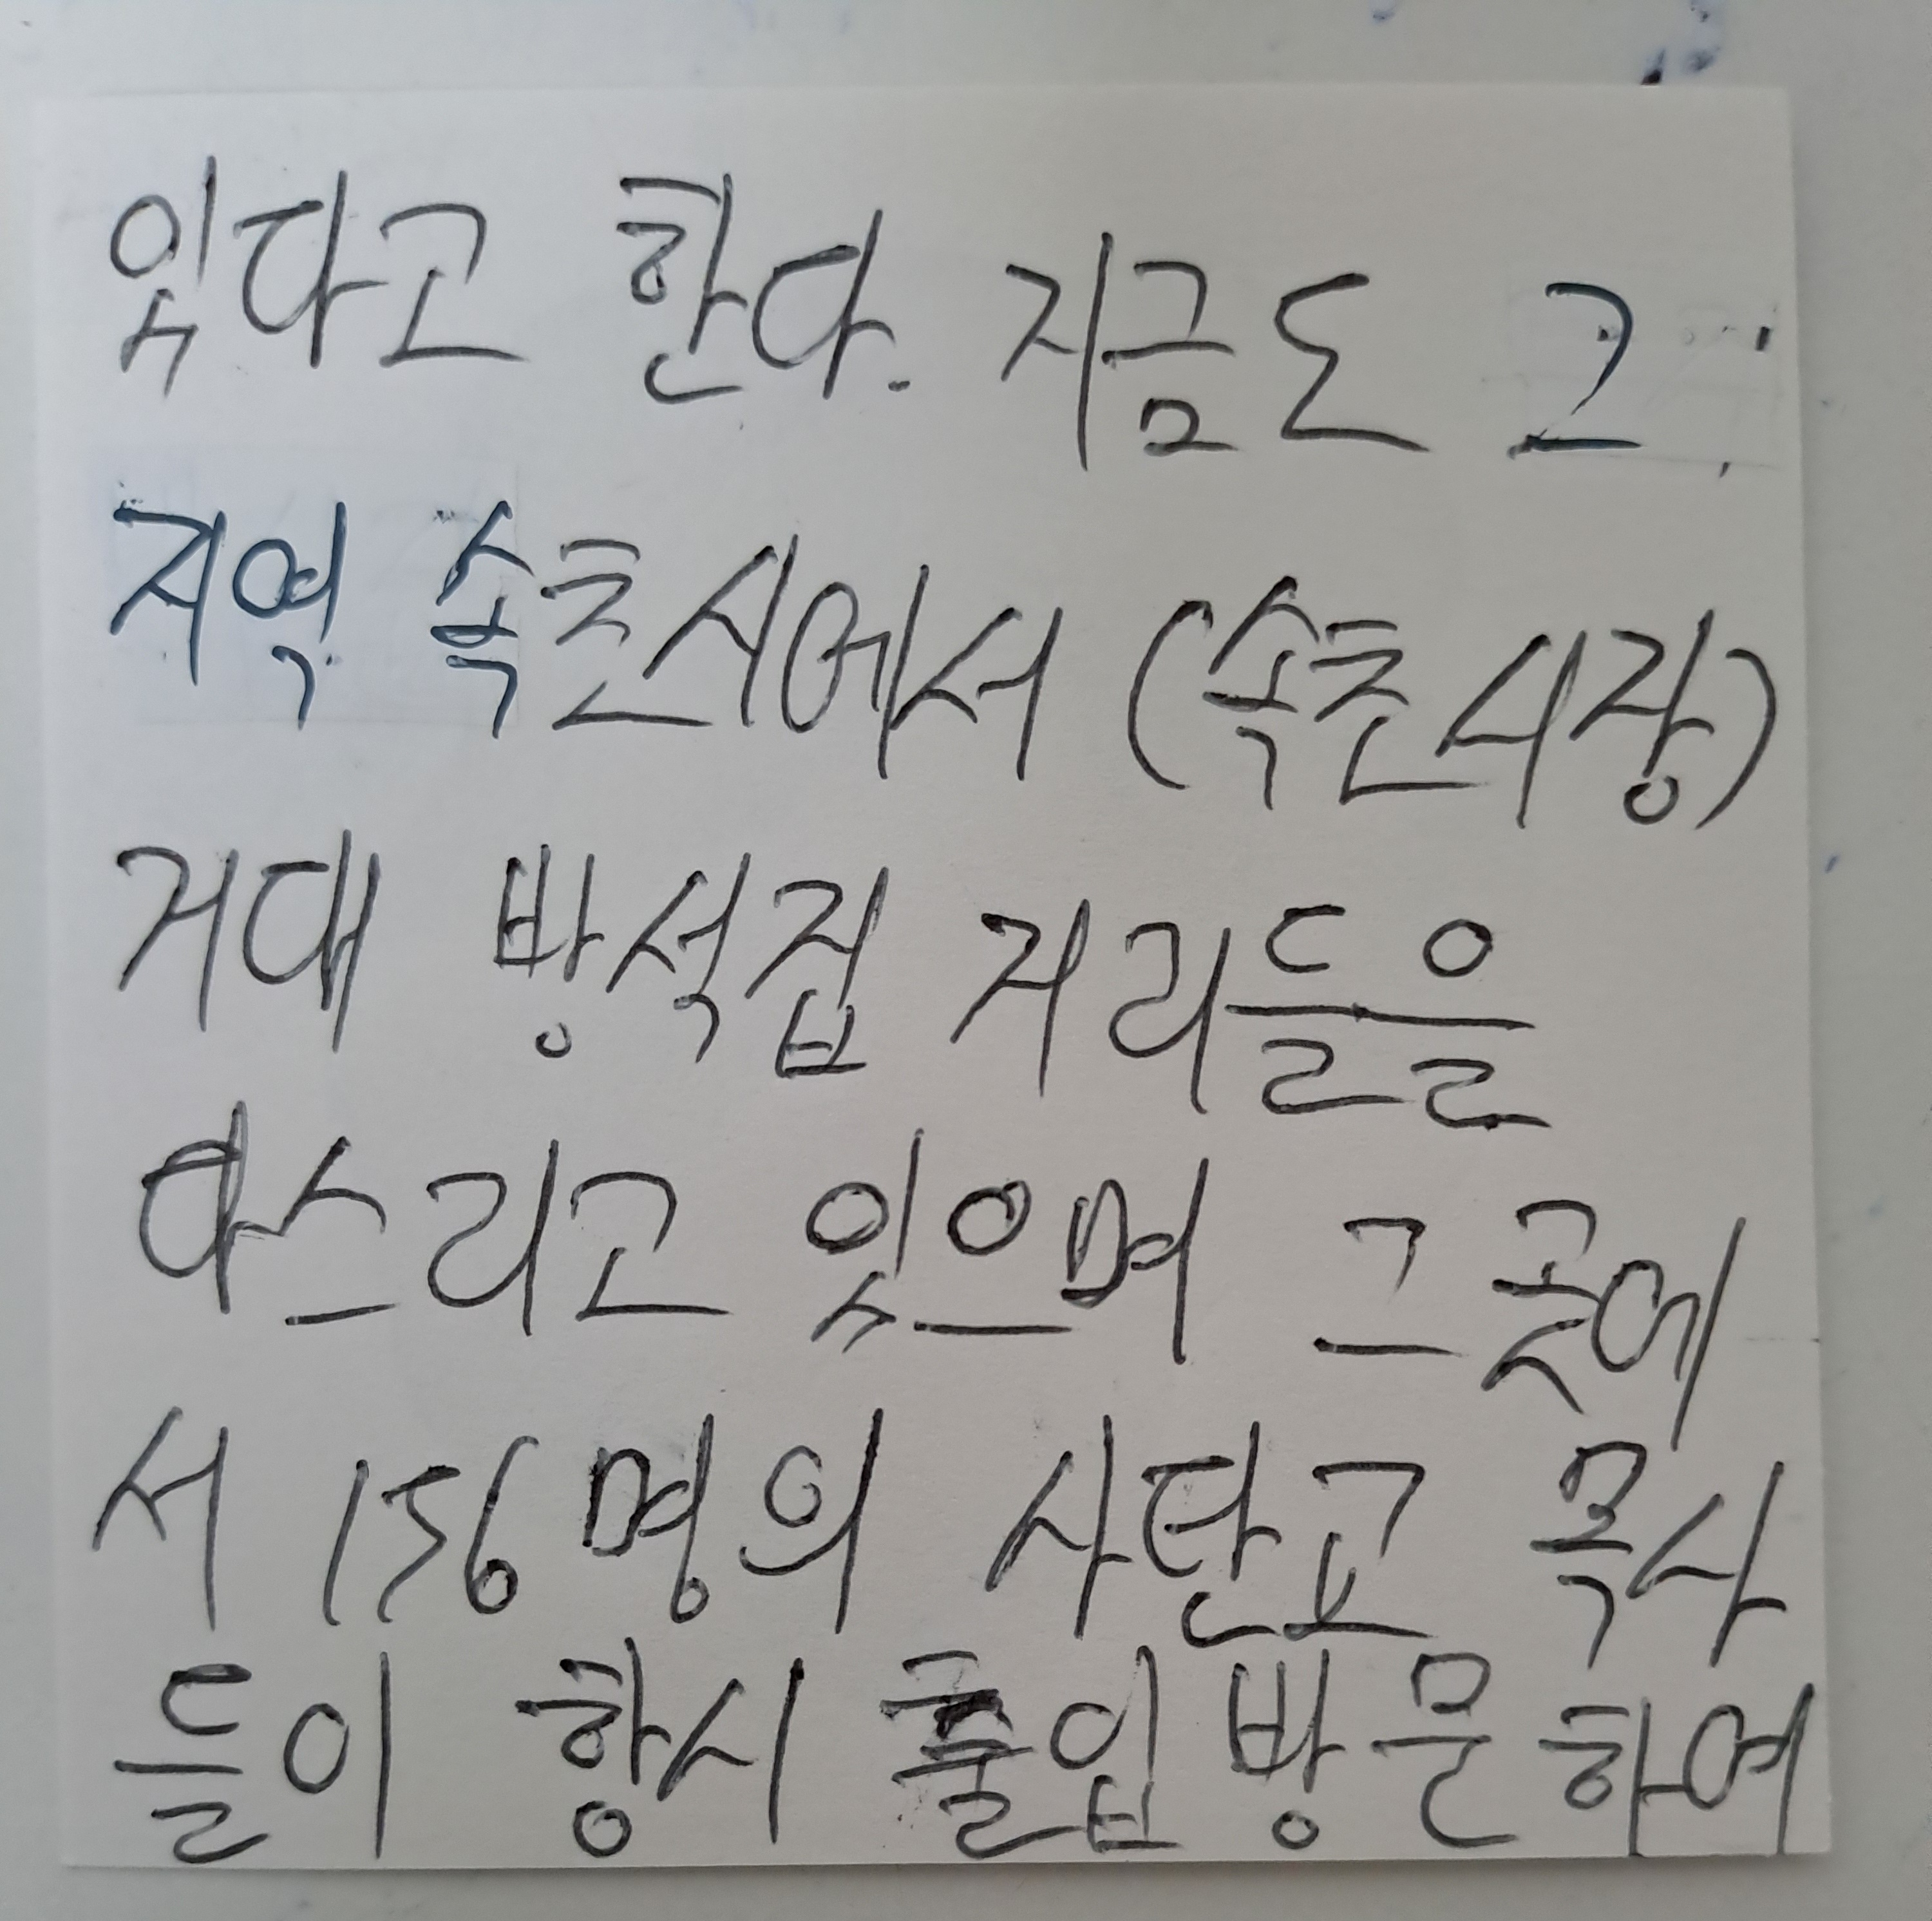 있다고 한다. 지금도 그
지역 속초시에서 (속초시장)
거대 방석집 거리들을
다스리고 있으며 그곳에
서 156명의 사탄교 목사
들이 항시 출입방문하여